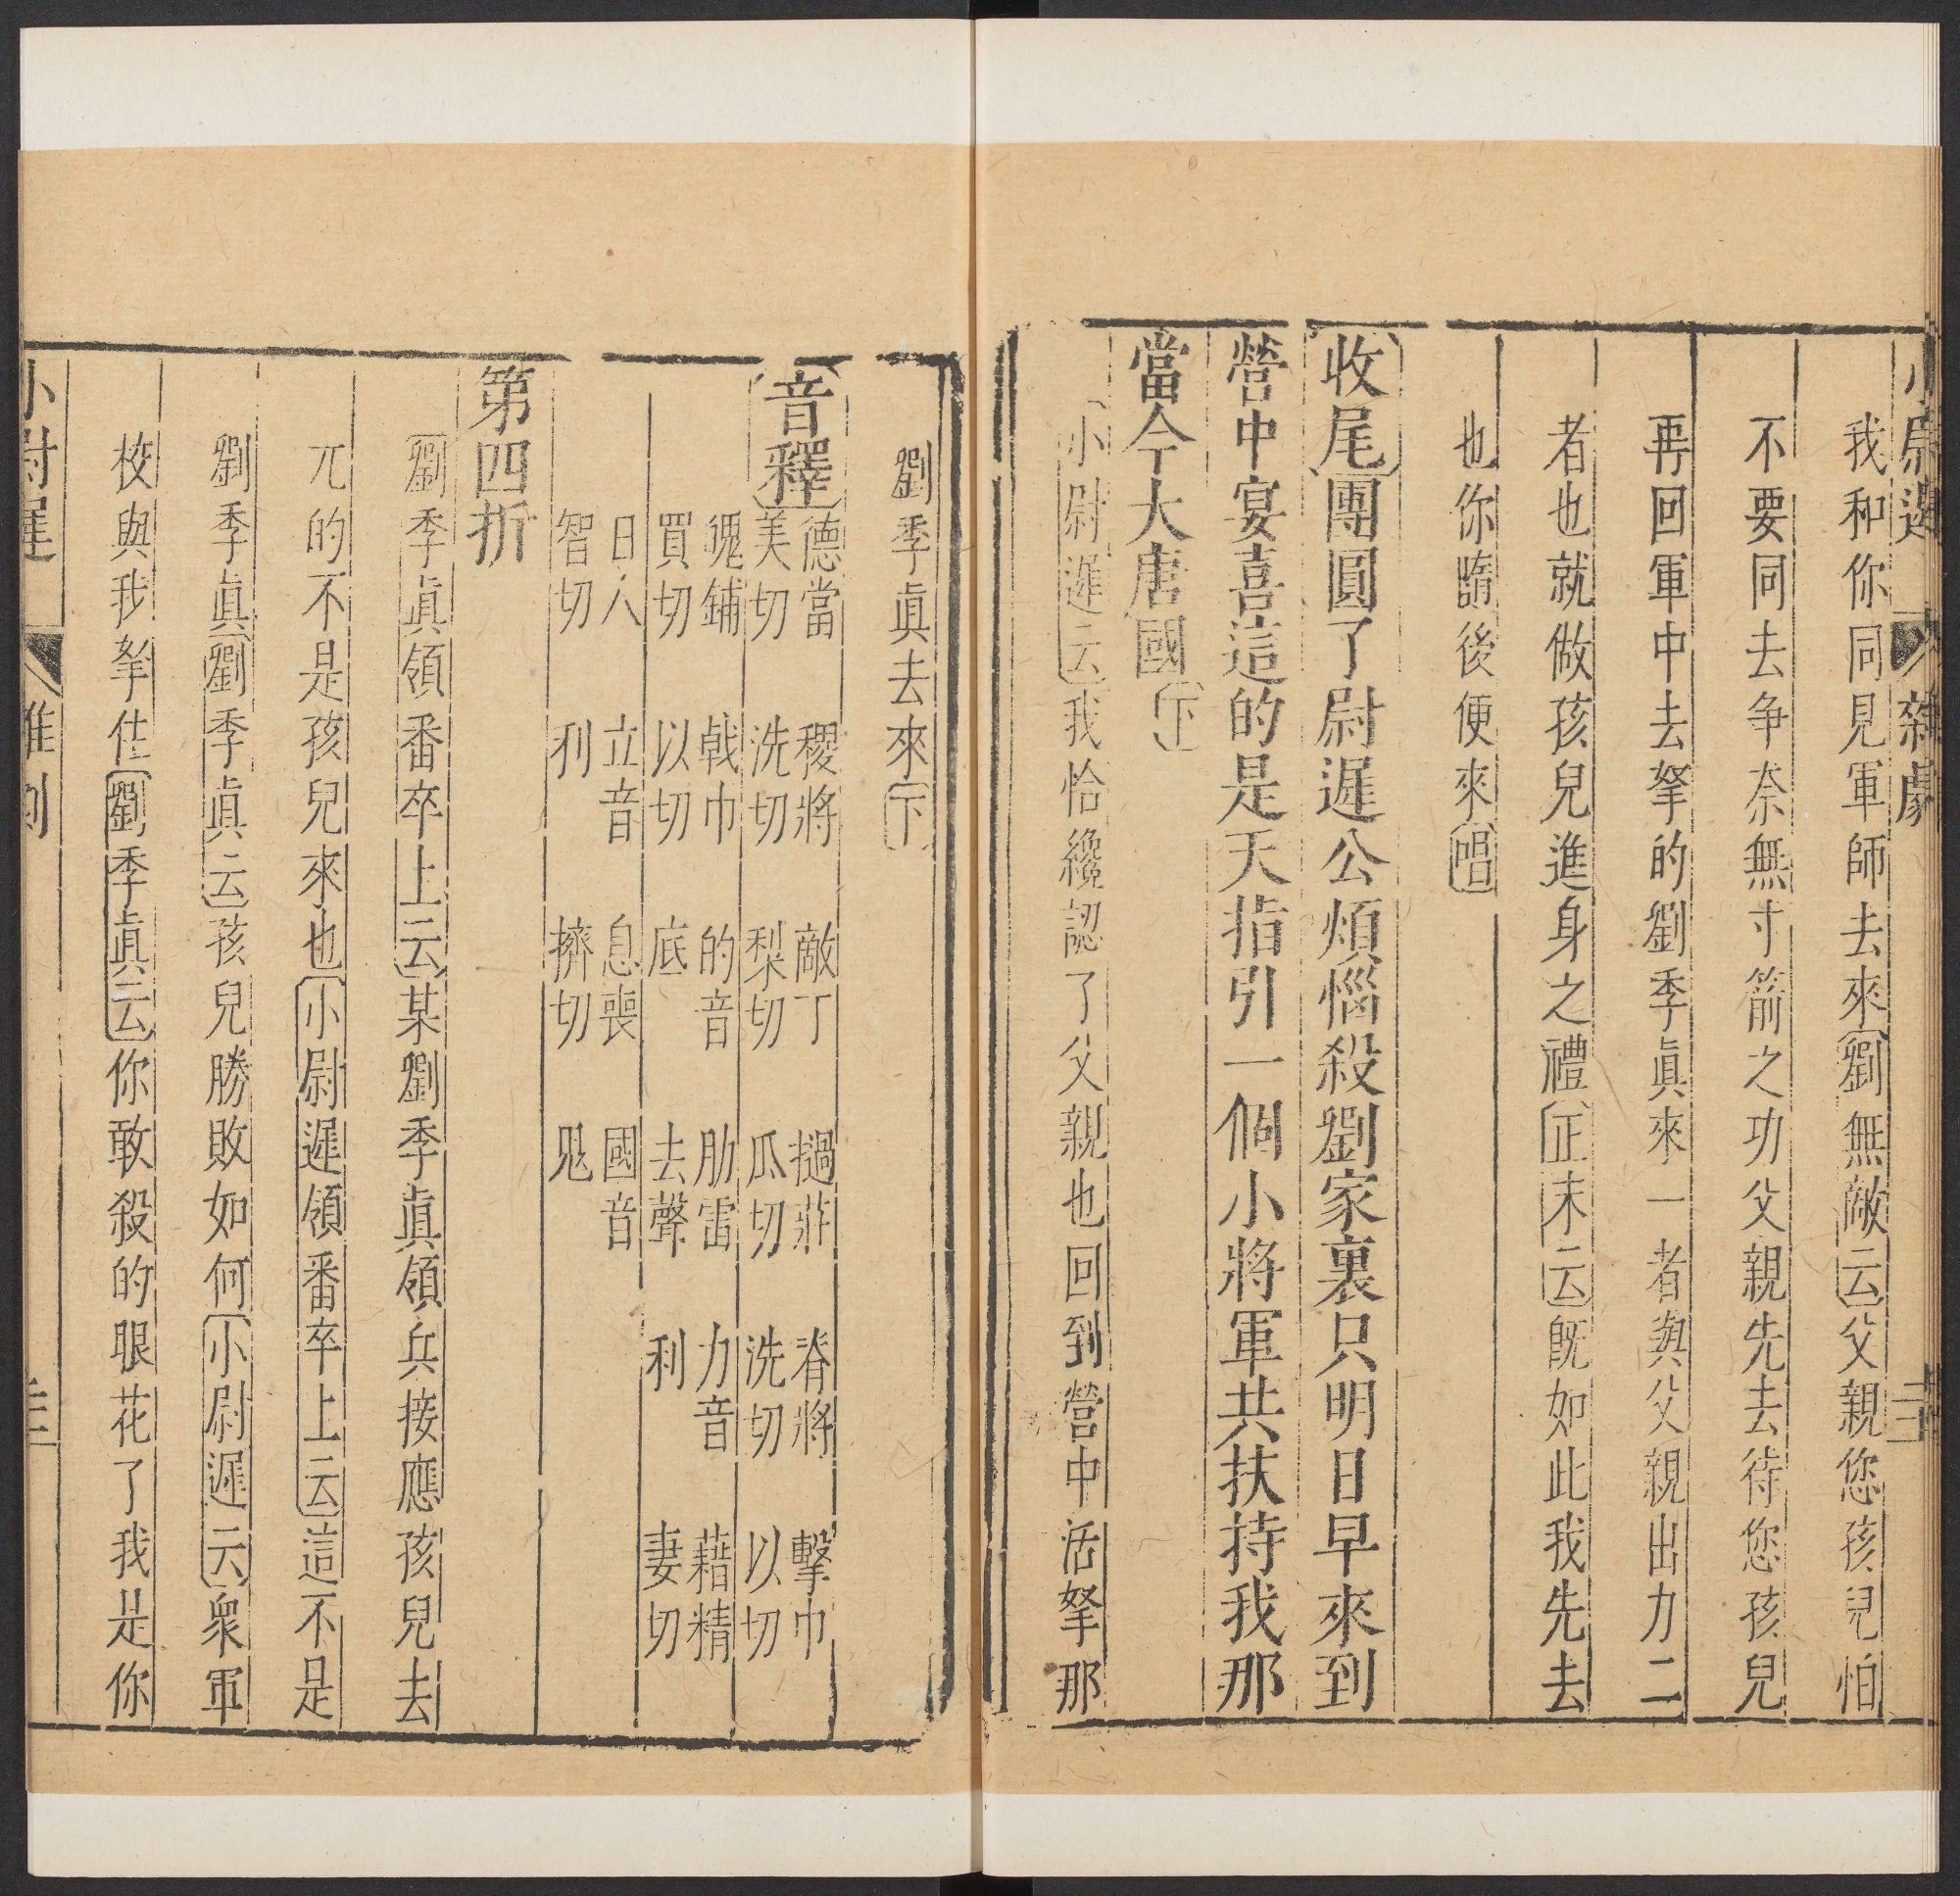 小尉遲 雜劇 二十
我和你同見軍師去來劉無敵云父親您孩兒怕
不要同去争奈無寸箭之功父親先去待您孩兒
再回軍中去拏的劉季眞來一者與父親出力二
者也就做孩兒進身之禮正末云既如此我先去
也你隨後便來唱
收尾團圓了尉遲公煩惱殺劉家裏只明日早來到
營中宴喜這的是天指引一個小將軍共扶持我那
當今大唐國下
小尉遲云我恰纔認了父親也回到營中活拏那
劉季眞去來下
音釋 德當美切 稷將洗切 敵丁梨切 撾莊瓜切 脊將洗切 擊巾以切
瑰鋪買切 戟巾以切 的音底 肋雷去聲 力音利 藉精妻切
日人智切 立音利 息喪擠切 國音鬼
第四折
劉季眞領番卒上云某劉季眞領兵接應孩兒去
兀的不是孩兒來也小尉遲領番卒上云這不是
劉季眞劉季眞云孩兒勝敗如何小尉遲云衆軍
校與我拏住劉季眞云你敢殺的眼花了我是你
小尉遲 雜劇